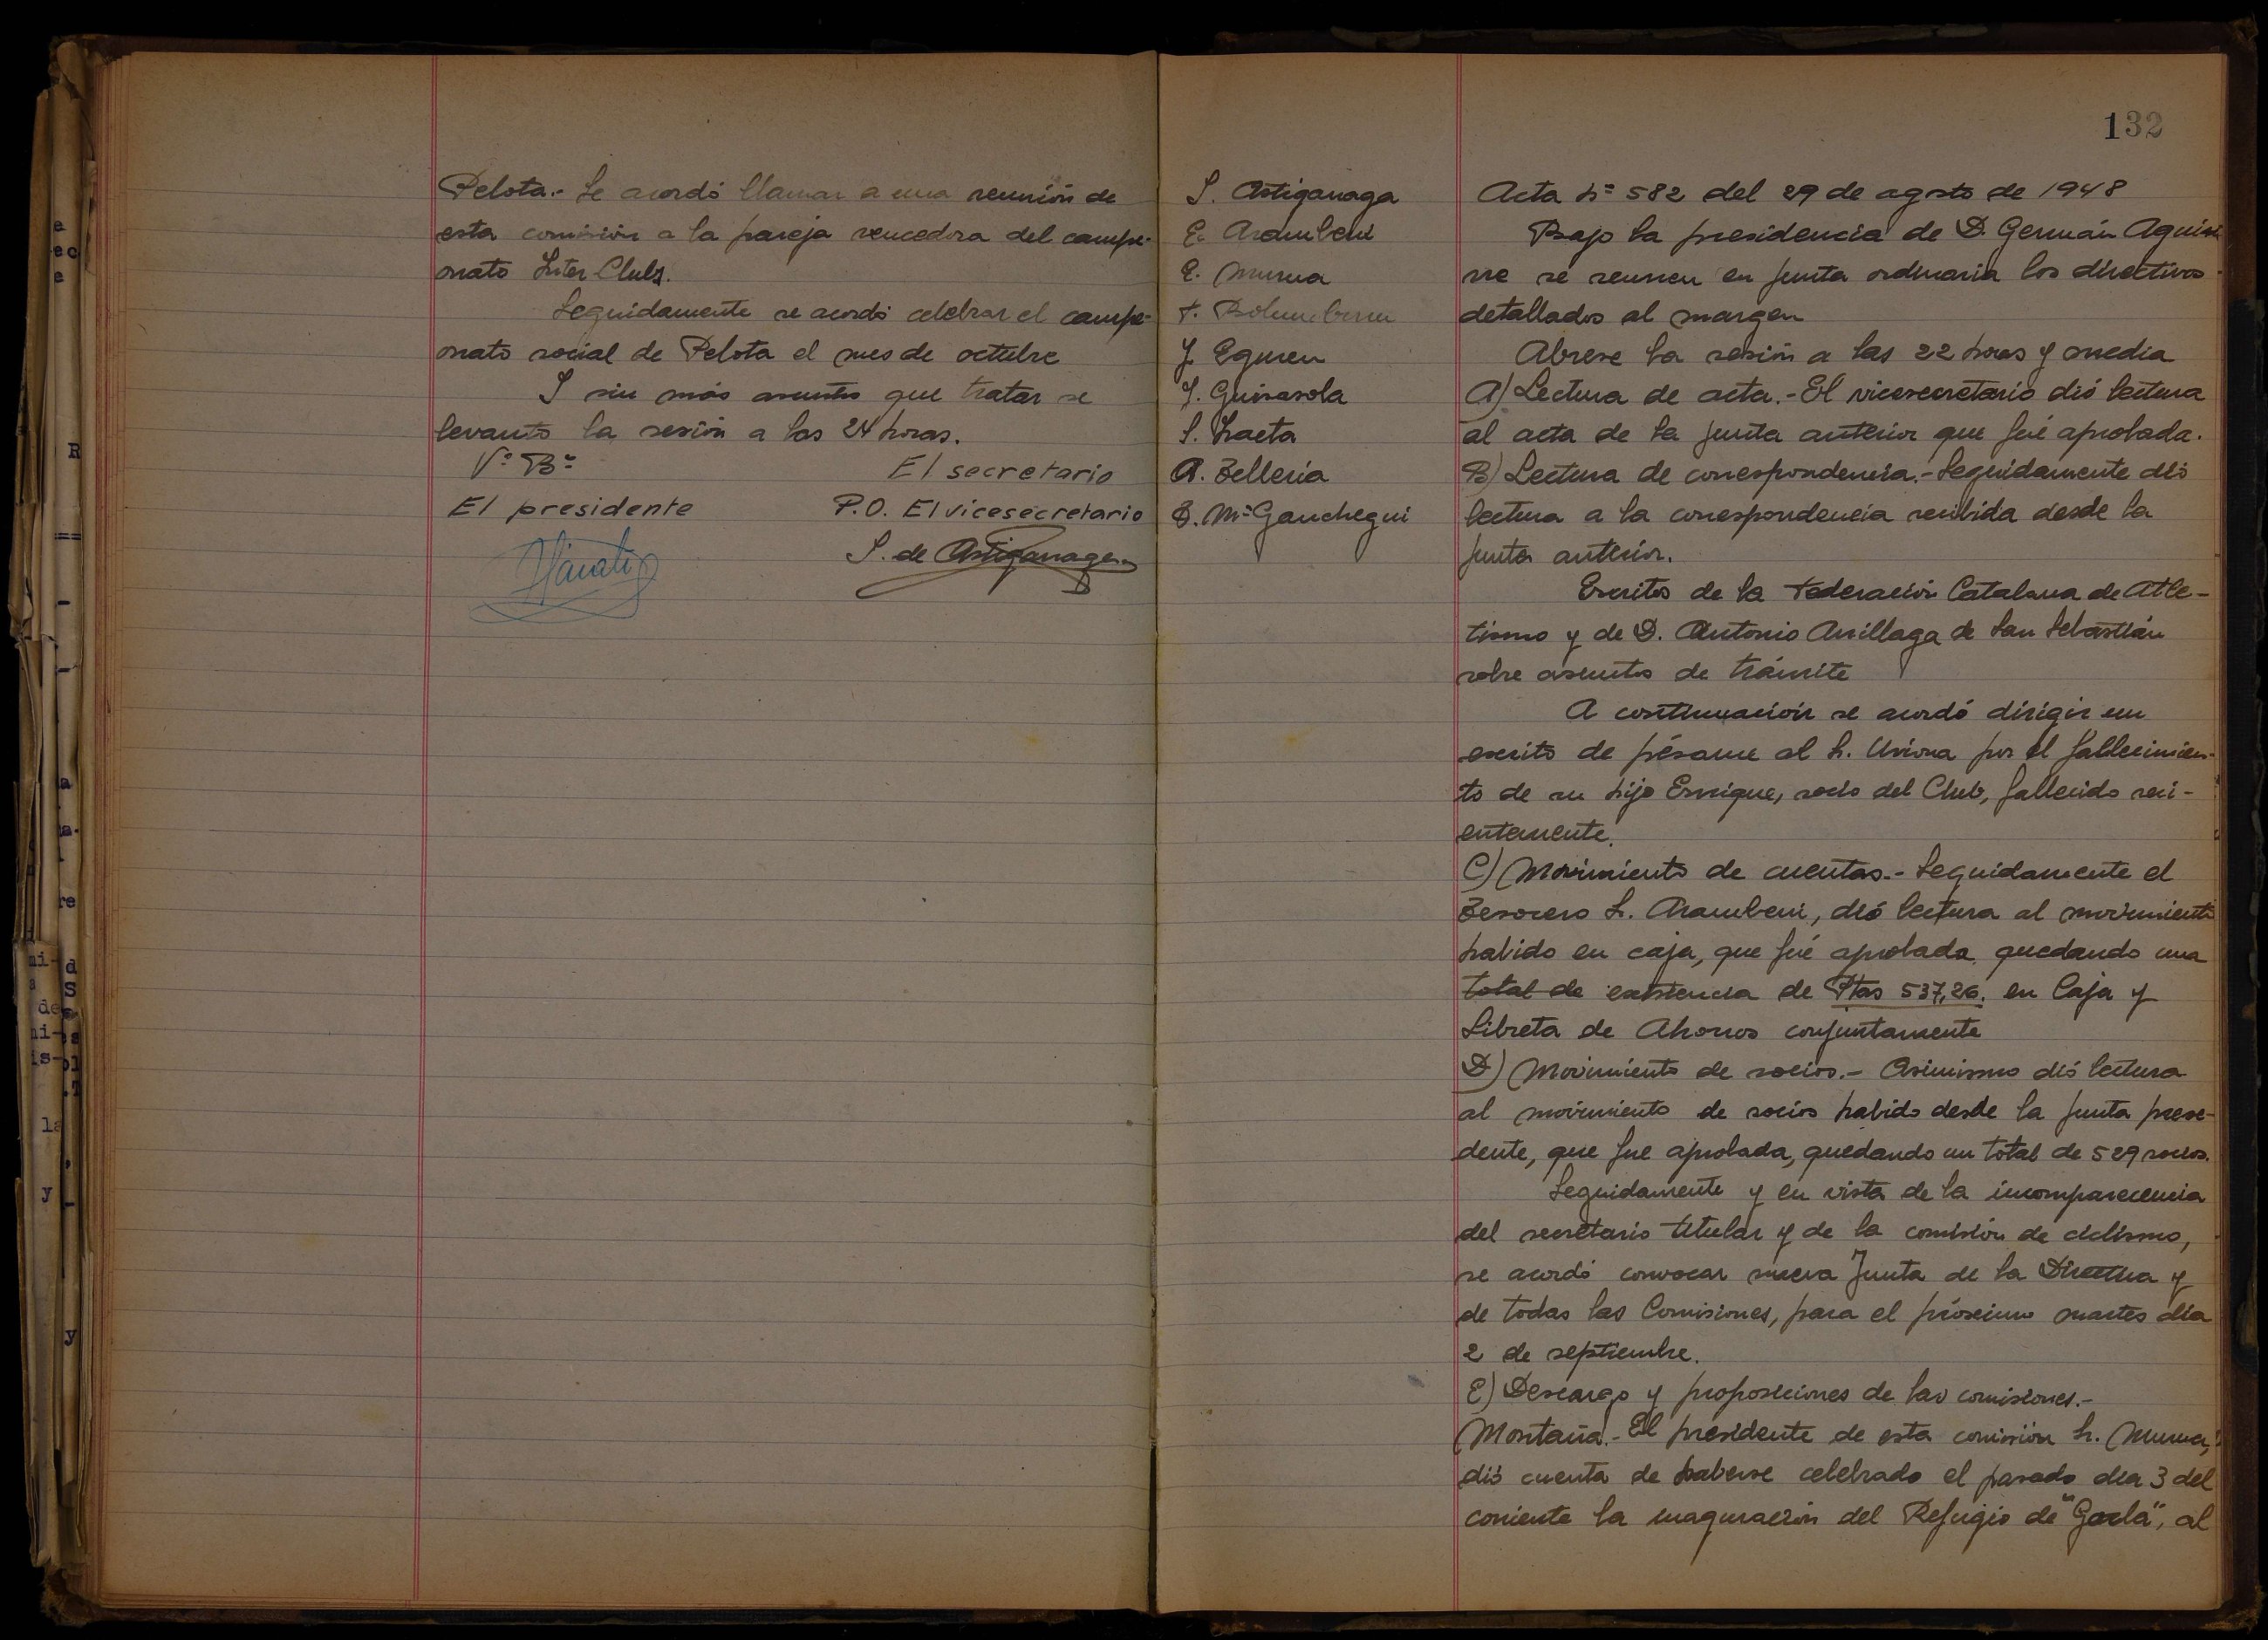 Pelota.- Se acordó llamar a una reunión de
esta comisión a la pareja vencedora del campe-
onato Inter-Clubs.
Seguidamente se acordó celebrar el campe-
onato social de Pelota el mes de octubre
I sin más asuntos que tratar se
levantó la sesión a las 24 horas.
Vº Bº
El presidente
El secretario
P.O. El vicesecretario
S. de Astiganaga
S. Astiganaga
E. Aramberri
E. Murua
J. Eguren
J. Guisasola
S. Iraeta
A. Telleria
B. Mª Ganchegui
132
Acta nº 582 del 29 de agosto de 1948
Bajo la presidencia de D. Germán Aguirr
rre se reunen en junta ordinaria los directivos
detallados al margen
Abrese la sesión a las 22 horas y media
A) Lectura de acta.- El vicesecretario dió lectura
al acta de la junta anterior que fué aprobada.
B) Lectura de correspondencia.- Seguidamente dió
lectura a la correspondencia recibida desde la
junta anterior.
Escritos de la Federación Catalana de Atle-
tismo y de D. Antonio Arrillaga de San Sebastián
sobre asuntos de trámite
A continuación se acordó dirigir un
escrito de pésame al Sr. por el fallecimien-
to de su hijo Enrique, socio del Club, fallecido reci-
entemente.
C) Movimiento de cuentas.- Seguidamente el
Tesorero Sr. Aramberri, dió lectura al movimiento
habido en caja, que fué aprobada, quedando una
total de existencia de Ptas 537,26. en Caja y
Libreta de Ahorros conjuntamente
D) Movimiento de socios.- Asimismo dió lectura
al movimiento de socios habido desde la junta prece-
dente, que fue aprobada, quedando un total de 529 socios.
Seguidamente y en vista de la incomparecencia
del secretario titular y de la comisión de ciclismo,
se acordó convocar nueva Junta de la Directiva y
de todas las Comisiones, para el próximo martes día
2 de septiembre.
E) Descargo y proposiciones de las comisiones.-
Montaña.- El presidente de esta comisión Sr. Murua,
dió cuenta de haberse celebrado el pasado día 3 del
corriente la inaguración del Refugio de "Gorla", al